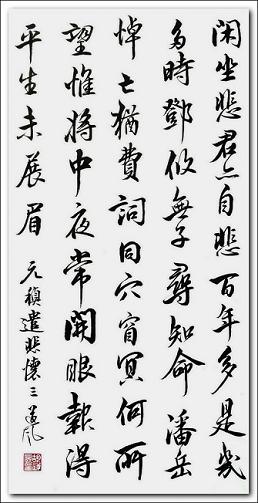 閑坐悲君亦自悲百年多是幾
多時鄧攸無子尋知命潘岳
悼亡猶費詞同穴窅冥何所
望惟將中夜常開眼報得
平生未展眉
元稹遣悲懷三